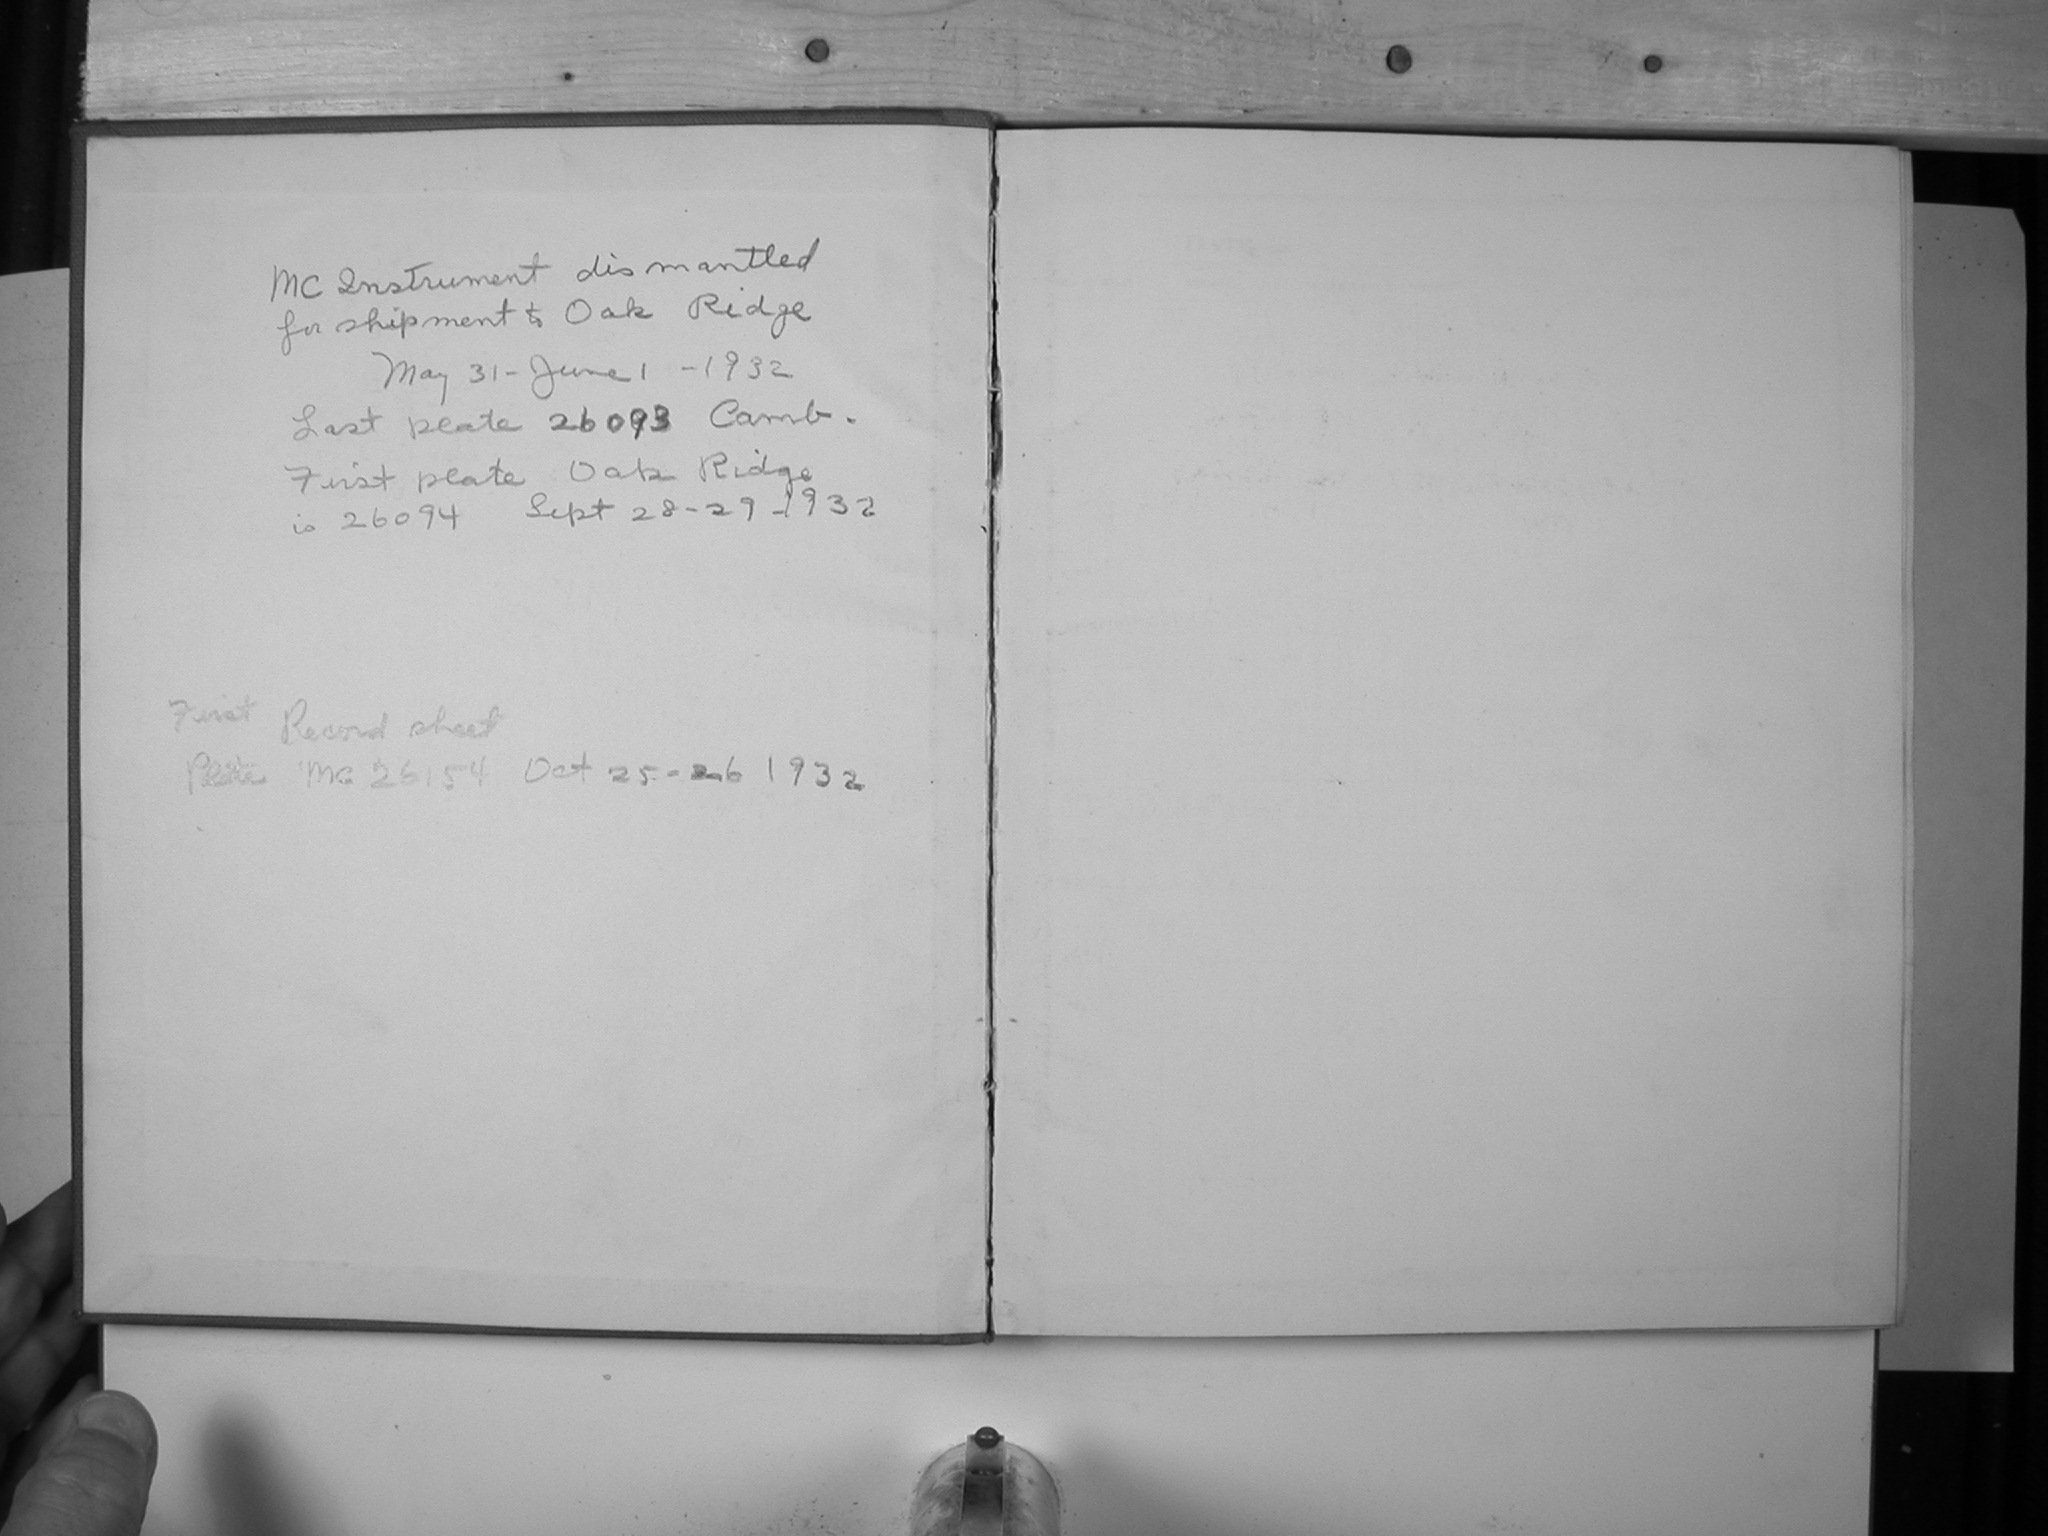 MC Instrument dismantled
for shipment to Oak Ridge
May 31 - June 1 - 1932
Last plate 26093 Camb.
First plate Oak Ridge
is 26094 Sept 28-29-1932
First Record sheet
Plate MC 26154 Oct 25-26 1932